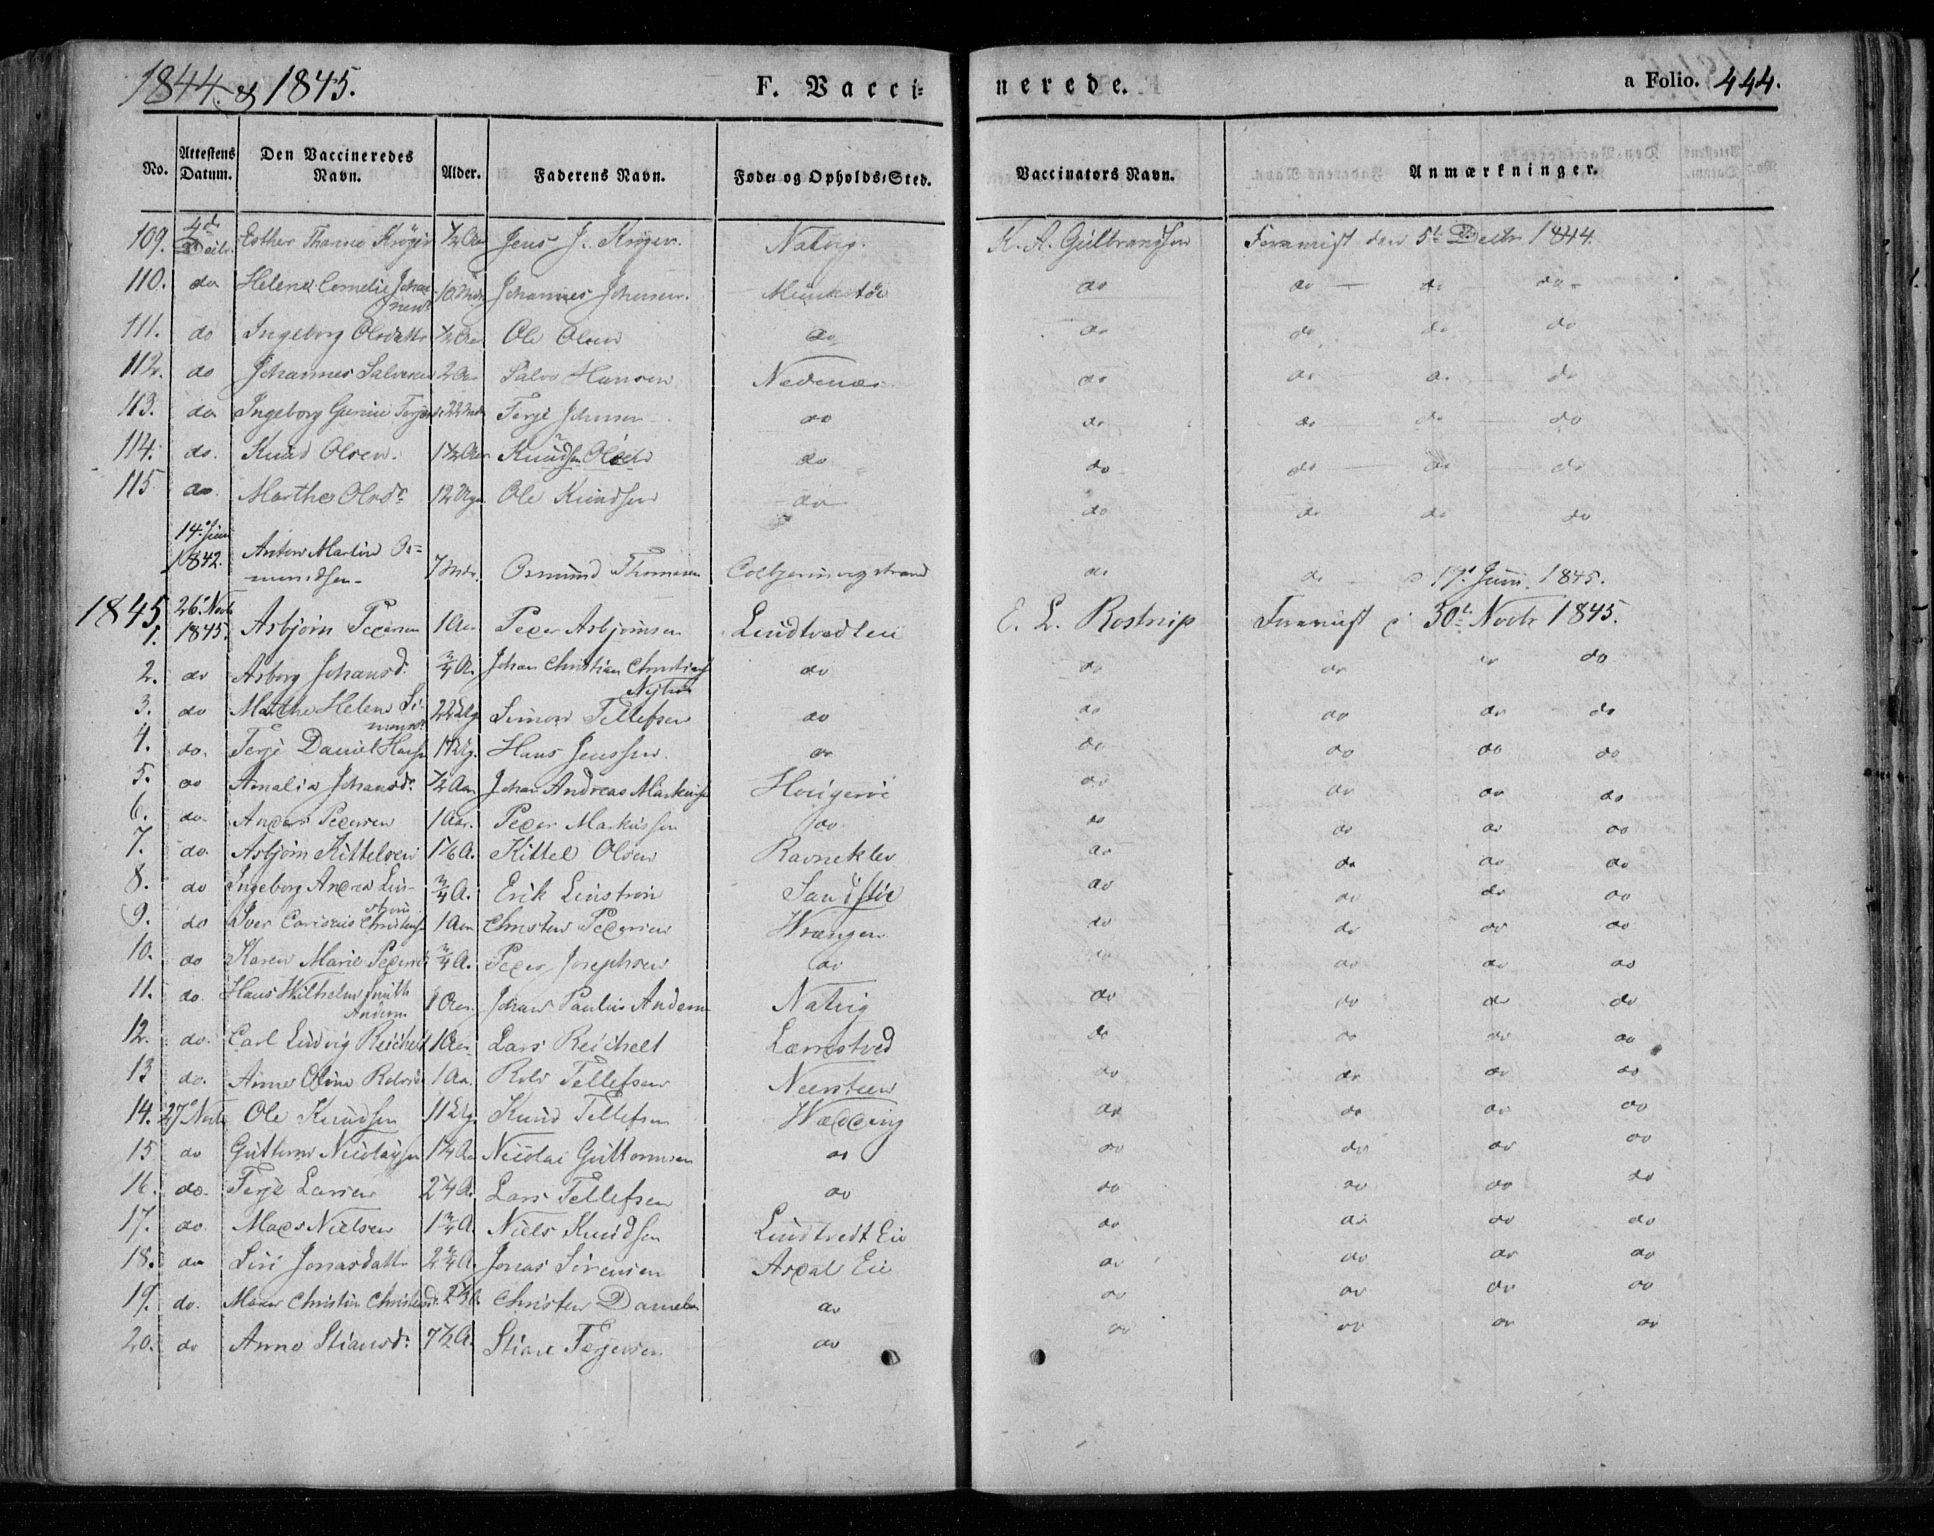 1844 & 1845.
F. Vacci= nerede.
a Folio. 444.
No. Attestens Datum. Den Vaccineredes Navn. Alder. Faderens Navn. Føde= og Opholds=Sted. Vaccinators Navn. Anmærkninger.
109. 4d Decbr. Esther Thamine Krøger ½ Aar Jens J. Krøger. Natvig K. A. Gulbrandsen Foreviist den 5te Decbr 1844.
110. do Helene Cornelie Johan- 10 Mdr. Johannes Johnsen. do do do do
nesd
111. do Ingeborg Olsdatter ½ Aar Ole Olsen do do do do do
112. do Johannes Salvesen 2 Aar Salve Hansen Nedenæs do do do do
113. do Ingeborg Gurine Terjesd 22 Mdr Terje Johnsen do do do do do
114. do. Knud Olsen. 1½ Aar Knudsen Ole do do do do do
115 do. Marthe Olsdr 12 Uger Ole Knudsen do do do do do
14. Juni
1842. Anton Martin Os=
mundsen 7 Mdr. Osmund Thomesen Colbjørnsvigstrand do do 17. Juni 1845.
1845
1. 26. Novbr 1845. Asbjørn Pedersen 1 Aar Peder Asbjørnsen Lundtvedteie E. L. Rostrup Foreviist d 30te Novbr 1845.
2. do Asborg Johansd. ¾ A. Johan Christian Christians do do do do do
3. do Marthe Helene Si- 22 Ug Simon Tellefsen do do do do do
monsd
4. do. Terje Daniel Hansen Hans Jenssen do do do do do
5. do Amalia Johansdr ½ Aar Johan Andreas Markussen Hougerøe do do do do
6. do. Anders Pedersen 1 Aar. Peder Markussen do do do do do
7. do. Asbjørn Kittelsen Kittel Olsen Ravneklev do do do do
8. do Ingeborg Andrea Lin- ¾ A. Erik Linstrøm Sandstøe do do do do
strøm
9. do Iver Christens 1 Aar Christen Pedersen Wrængen do do do do
10. do Karen Marie Pedersd ¾ A. Peder Josephsen do do do do do
11. do. Hans Wilhelm Smith 1 Aar. Johan Paulus Andersen Natvig do do do do
Andersen
12. do. Carl Ludvig Reichelt 1 Aar Lars Reichelt Læmstved do do do do
13 do. Anne Oline Rolvsd 1 Aar. Rolv Tellefsen Neersteen do do do do
14. 27. Novbr Ole Knudsen 11 Ug. Knud Tellefsen Wedding do do do do
15 do Guttorm Nicolaysen Nicolai Guttormsen do do do do do
16. do. Terje Larsen 2¼ A. Lars Tellefsen do do do do do
17. do. Mads Nielsen 1¾ A Niels Knudsen Lundtvedt Eie do do do do
18. do Siri Jonasdatter 2¾ A. Jonas Sørensen Asdal Eie do do do do
19. do. Maren Christine Christensd. Christen Danielsen do do do do do
20. do Anne Stiansdr 7½ A. Stian Terjersen do do do do do